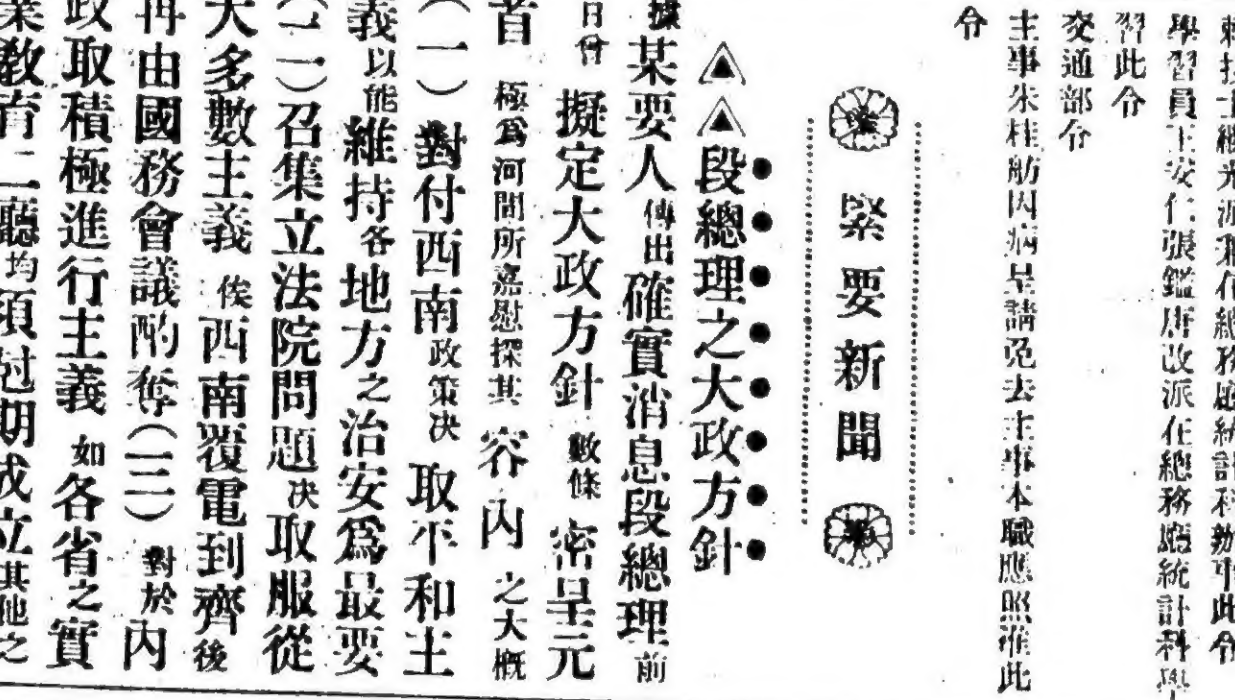 學習員王安仁張鑑唐改派在總務廳統計科學
習此令
交通部令
主事朱桂舫因病呈請免去主事本職應照准此
令
緊要新聞
▲▲段總理之大政方針
據某要人傳出確實消息段總理前
日曾擬定大政方針數條密呈元
首極爲河間所嘉慰探其容內之大概
（一）對付西南政策决取平和主
義以能維持各地方之治安爲最要
（二）召集立法院問題决取服從
大多數主義俟西南覆電到齊後
再由國務會議酌奪（三）對於內
政取積極進行主義如各省之實
業教育二廳均須尅期成立其他之